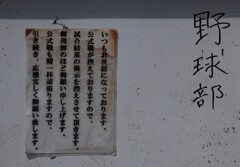 いつも御世話になっております。
公式戦が控えておりますので、
試合結果の掲示を控えさせて頂きます。
御理解のほど御願い申し上げます。
公式戦も精一杯頑張りますので、
引き続き、応援宜しく御願い致します。
野球部